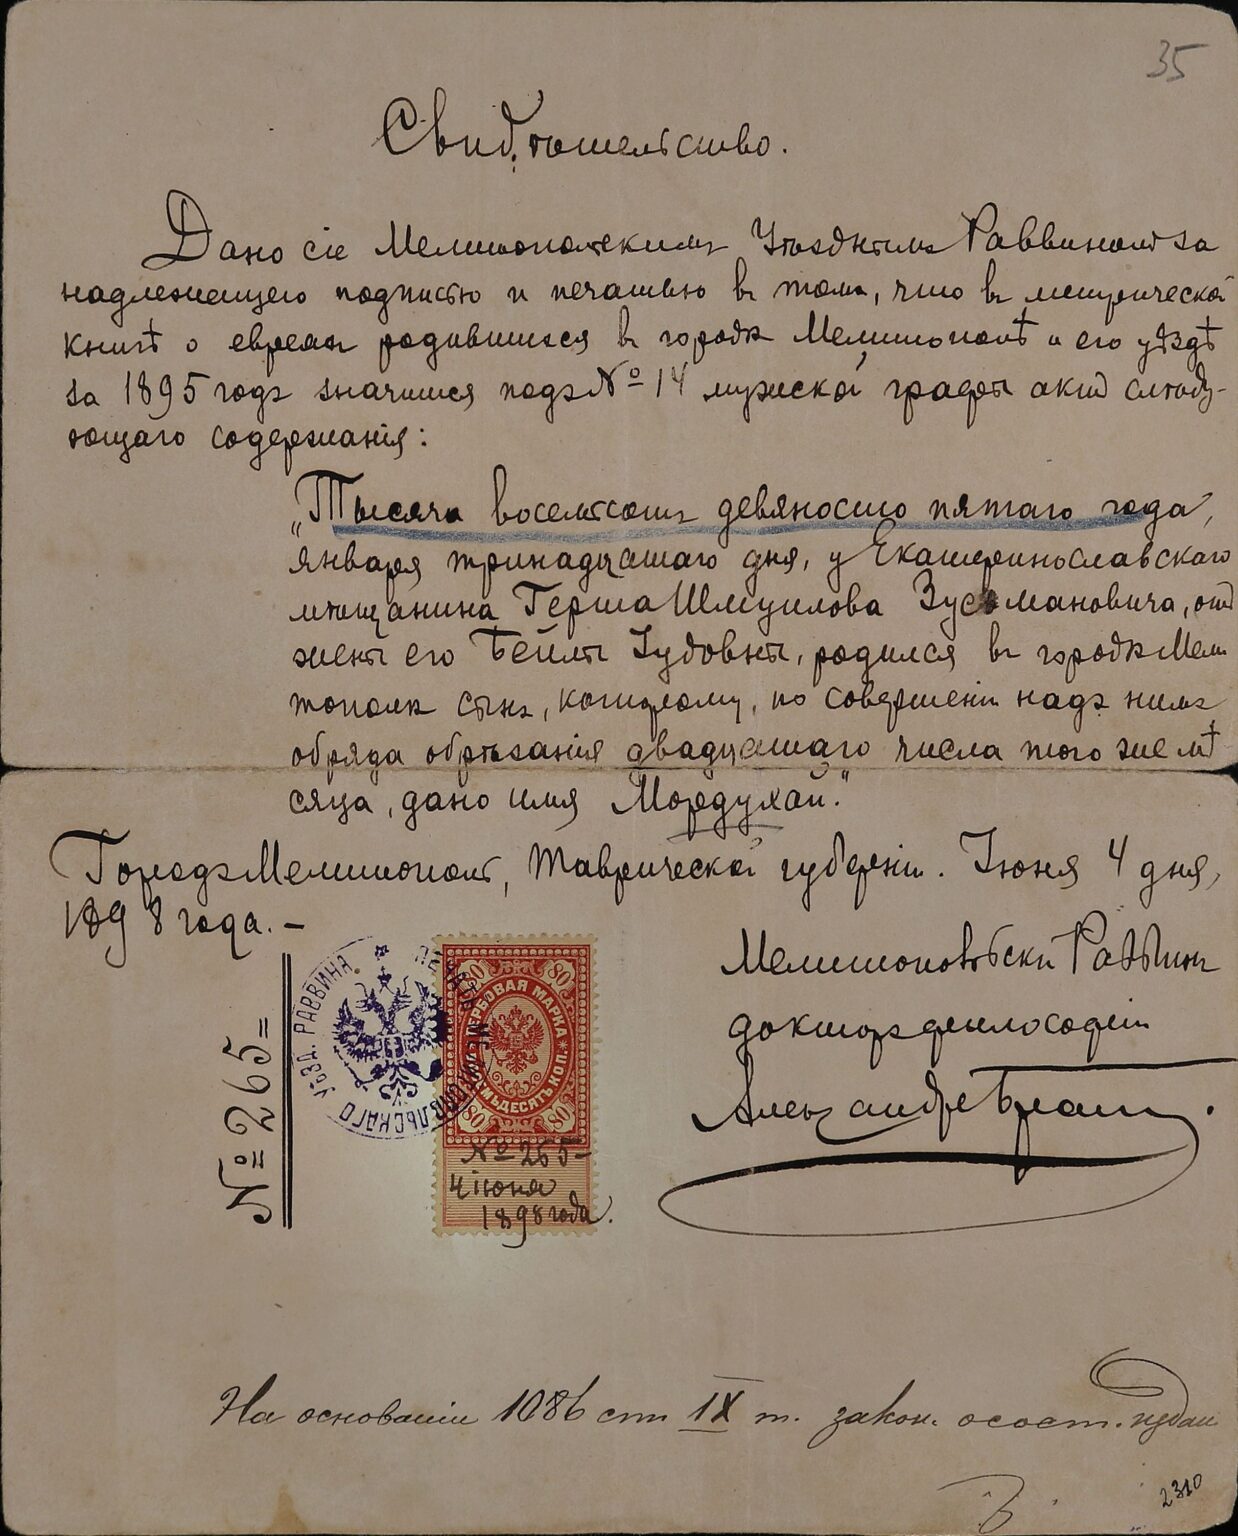 35
Свидѣтельство.
Дано сіе Мелитопольскимъ Уѣзднымъ Раввиномъ за
надлежащею подписью и печатью въ томъ, что въ метрической
книгѣ о евреяхъ родившихся въ городѣ Мелитополѣ и его уѣздѣ
за 1895 годъ значится подъ № 14 мужской графы актъ слѣду-
ющаго содержанія:
„Тысяча восемьсотъ девяносто пятаго года,
января тринадцатаго дня, у Екатеринославскаго
мѣщанина Герша Шмуилова Зусмановича, отъ
жены его Бейлы Іудовны, родился въ городѣ Мели
тополѣ сынъ, которому, по совершеніи надъ нимъ
обряда обрѣзанія двадцатаго числа того же мѣ
сяца, дано имя Мордухай."
Городъ Мелитополь, Таврической губерніи. Іюня 4 дня,
1898 года. –
Мелитопольскій Раввинъ
докторъ философіи
Александръ
№ 265 =
УѢЗД. РАВВИНА
МЕЛИТОПОЛЬСКАГО
80 80
ГЕРБОВАЯ МАРКА
ВОСЕМЬДЕСЯТЪ КОП.
80 80
№ 265 –
4 іюня
1898 года.
На основаніи 1086 ст. IX т. закон. о сост. издан
2310